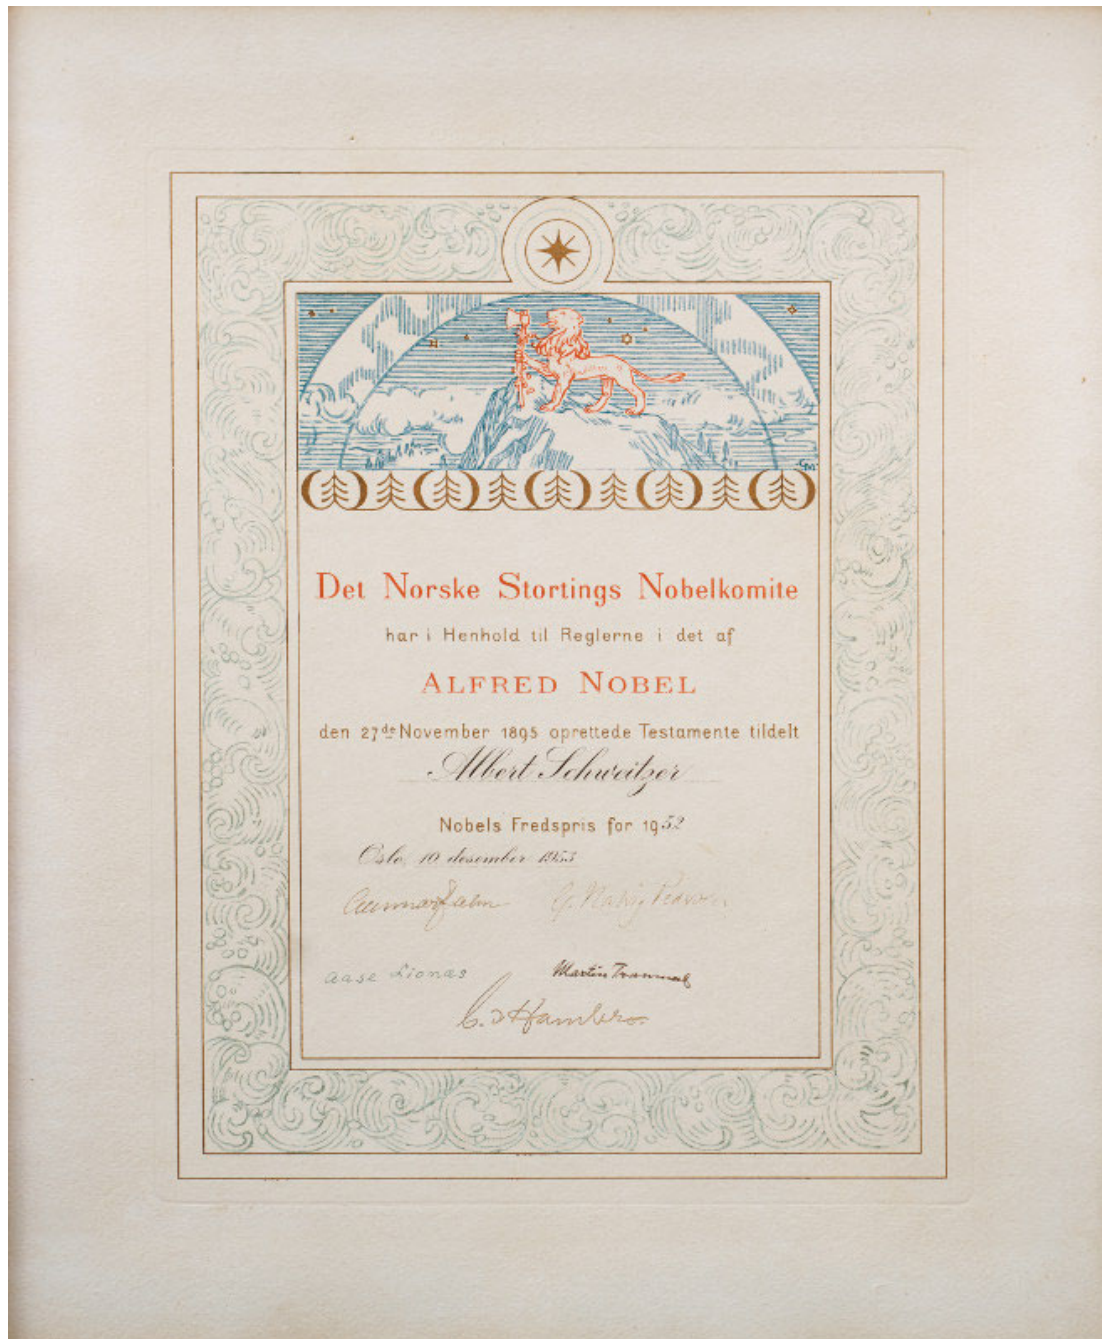 Det Norske Stortings Nobelkomite
har i Henhold til Reglerne i det af
ALFRED NOBEL
den 27de November 1895 oprettede Testamente tildelt
Albert Schweitzer
Nobels Fredspris for 1952
Oslo, 10 desember 1953
Gunnar Jahn
G. Natvig Pedersen
Aase Lionæs
Martin Tranmæl
C. J. Hambro
GM